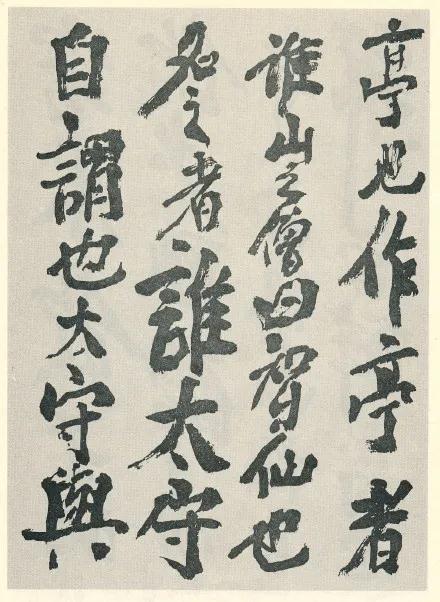 亭也作亭者
誰山之僧曰智仙也
名之者誰太守
自謂也太守與